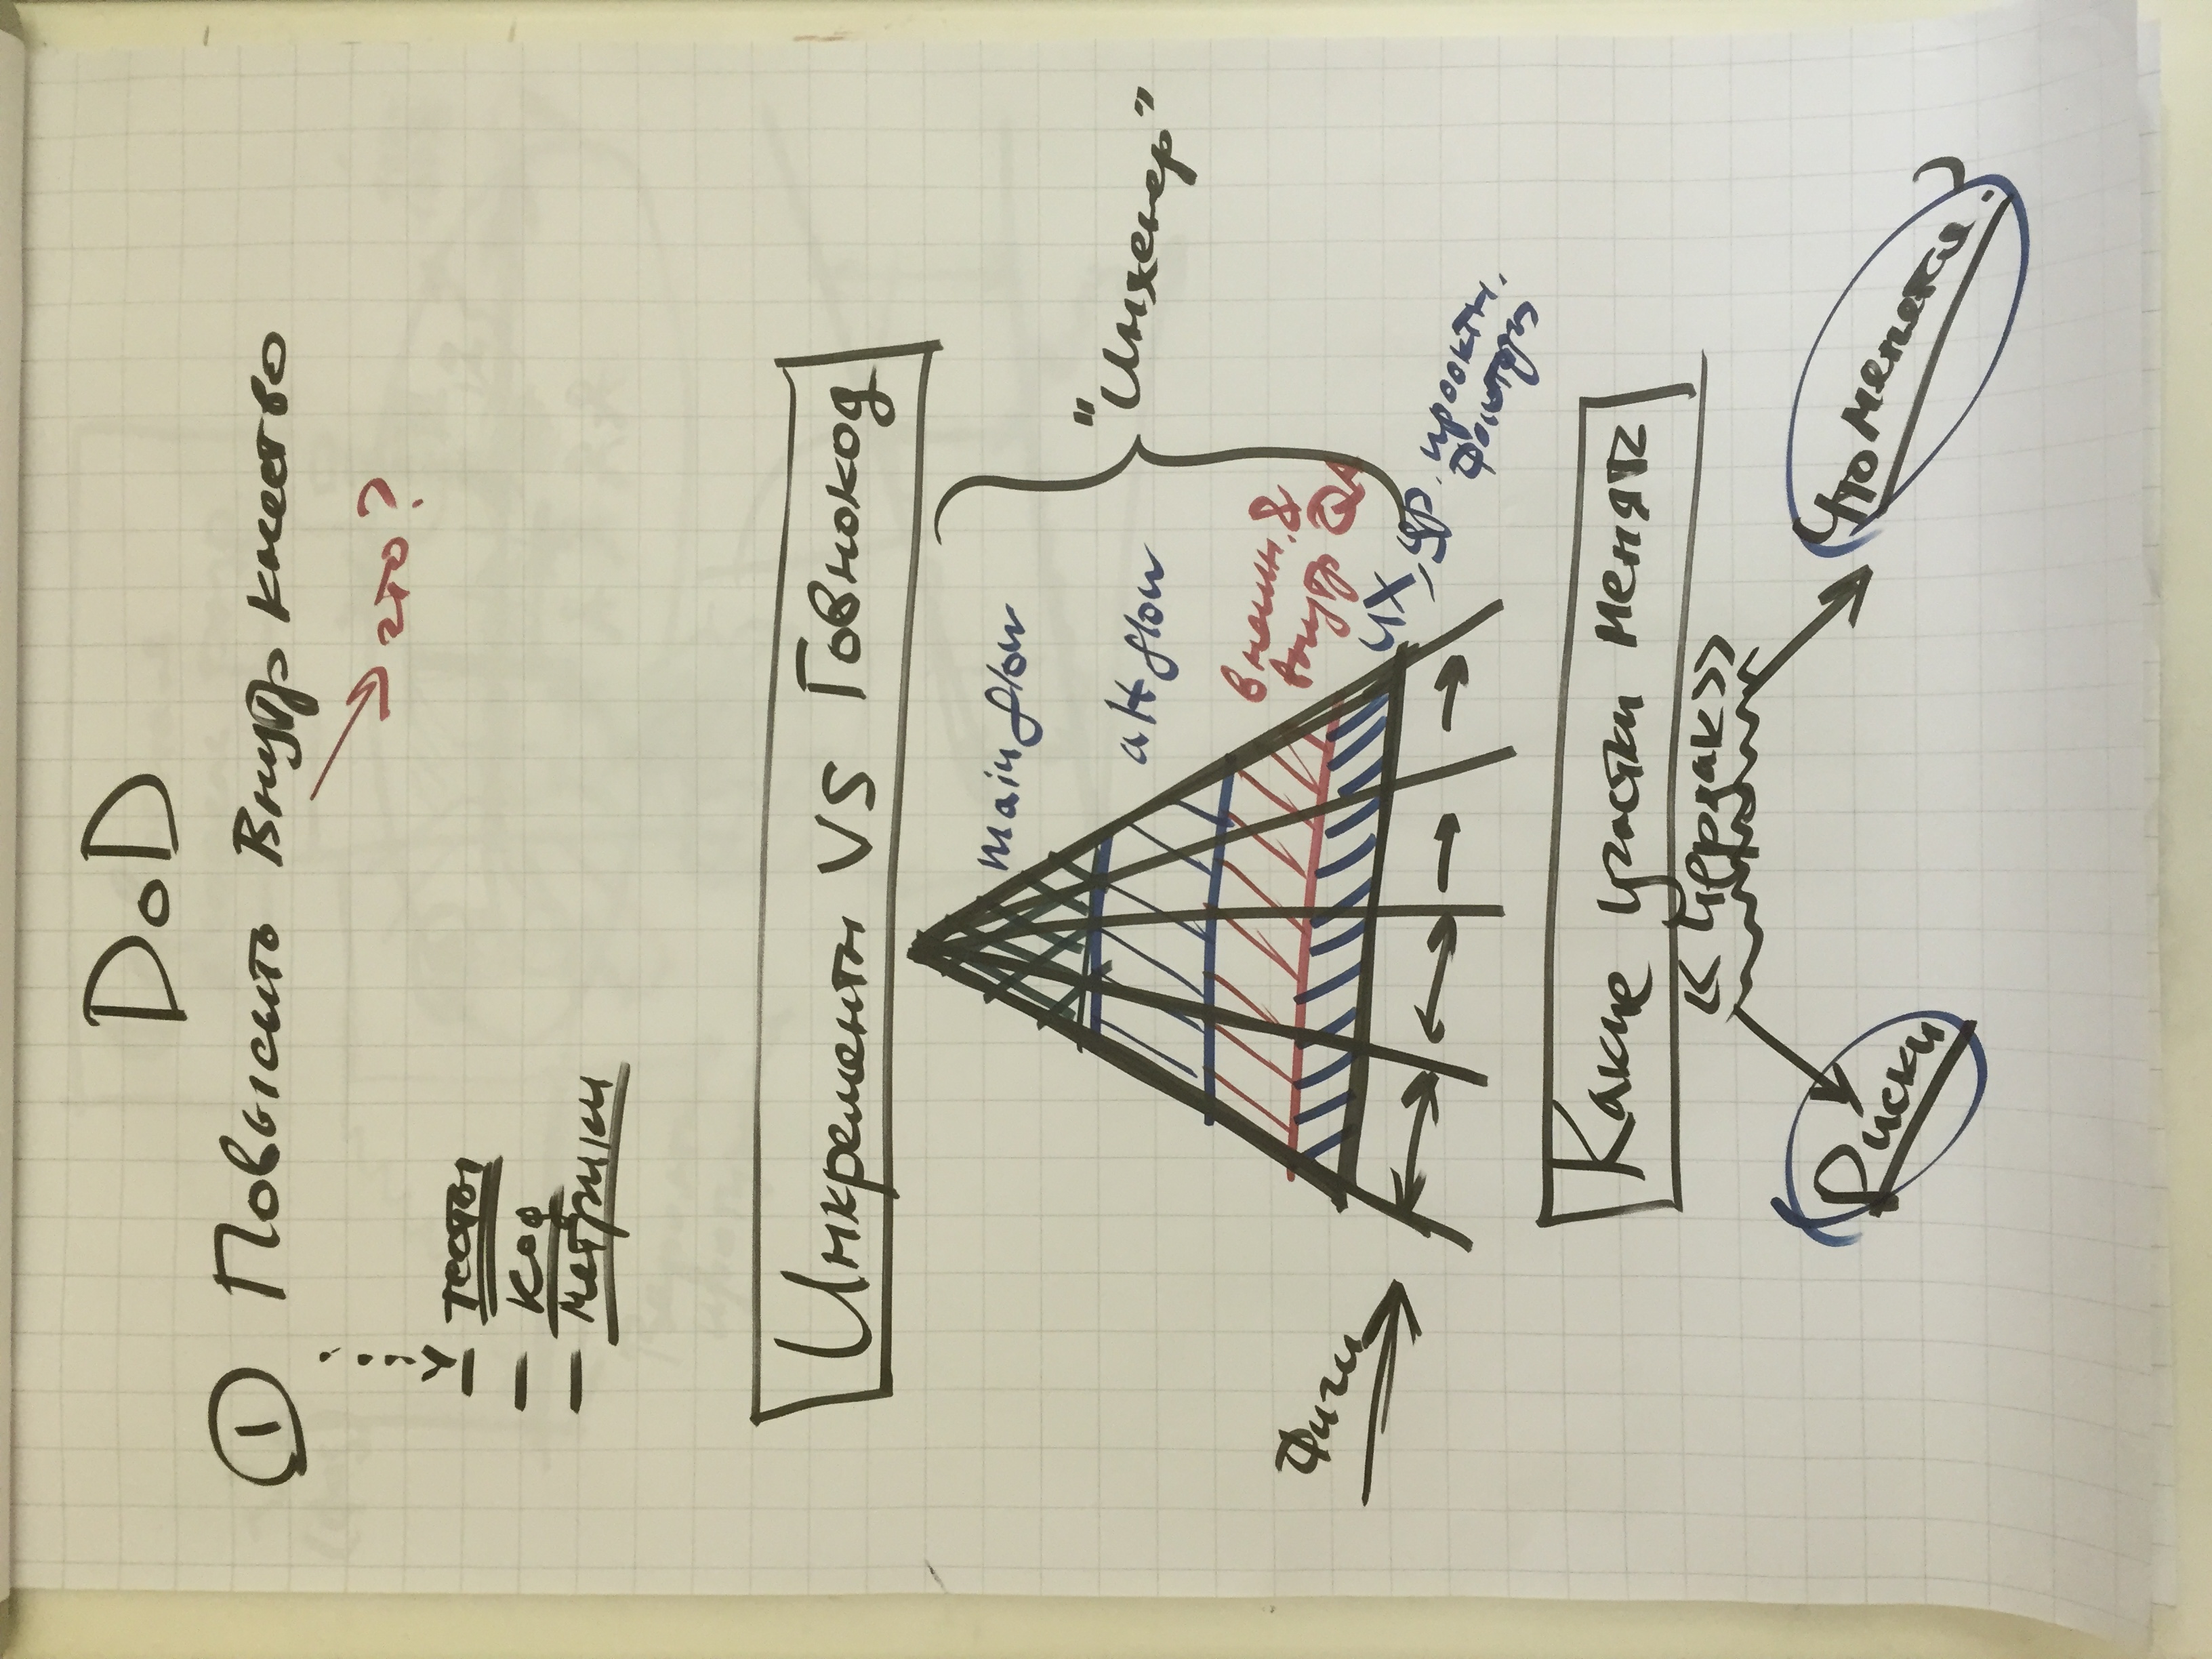 DoD
① Повысить Внутр кчество
что?
— тесты
— код
— метрики
Инкременты VS Говнокод
main flow
alt flow
"Инженер"
внешн. &
внутр QA
Фичи
UX, др. проектн.
факторы
Какие участки менять
<<Чердак>>
Риски
Что меняется?